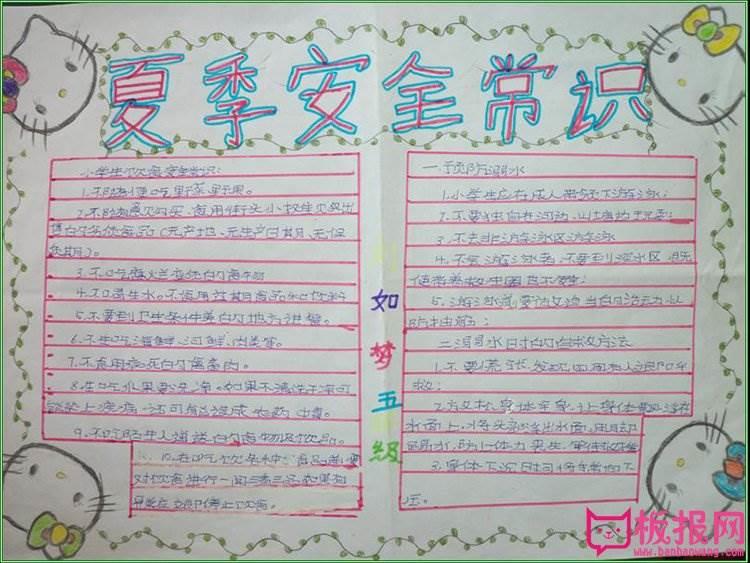 夏季安全常识
小学生饮食安全常识:
1.不随便吃野菜野果。
2.不随意购买、食用街头小摊贩出
售的劣质食品(无产地、无生产日期、无保
质期)。
3.不吃腐烂变质的食物
4.不喝生水。不食用过期食品和饮料
5.不要到卫生条件差的地方进餐。
6.不生吃海鲜、河鲜、肉类等。
7.不食用病死的禽畜肉。
8.生吃水果要洗净。如果不清洗干净可
能染上疾病,还可能造成农药中毒。
9.不吃陌生人递送的食物及饮品。
10.在吃饮
对饮食进行一闻
立即停止饮食
如梦五级
一.预防溺水
1.小学生应在成人带领下游泳;
2.不要独自在河边、山塘边玩耍;
3.不去非游泳区游泳
4.不会游泳者,不要到深水区,既
使带着救生圈也不安全;
5.游泳前要做适当的准备活动,以
防抽筋;
二.溺水时的自救方法
1.不要慌张,发现周围有人立即呼
救;
2.放松全身,让身体飘浮在
水面上,将头部浮出水面,用脚
踢水,防止体力丧失,等待救援
3.身体下沉时,可将手掌向下
压。
板报网
www.banbaowang.com